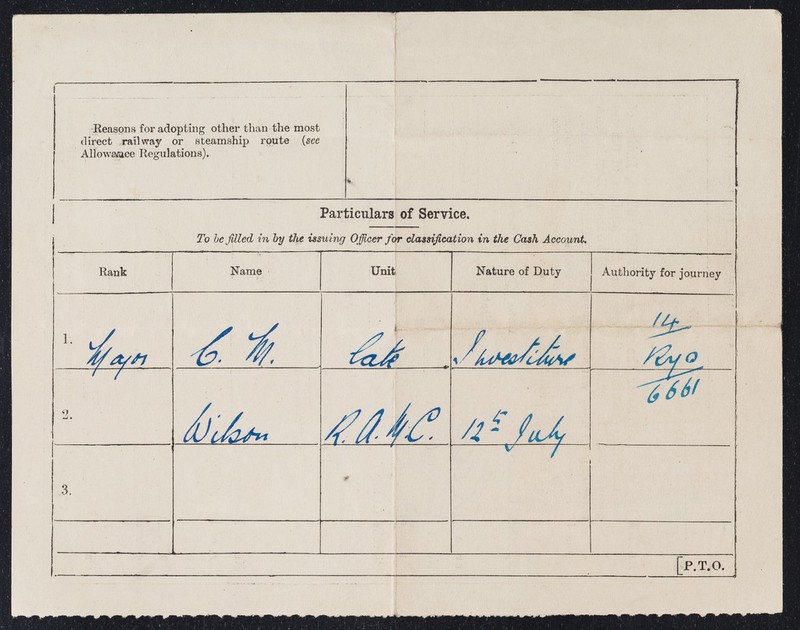 Reasons for adopting other than the most
direct railway or steamship route (see
Allowance Regulations).
Particulars of Service.
To be filled in by the issuing Officer for classification in the Cash Account.
Rank Name Unit Nature of Duty Authority for journey
14
1. Major C. M. late Investiture Ryo
6661
2. Wilson R.A.M.C. 12th July
3.
[P.T.O.